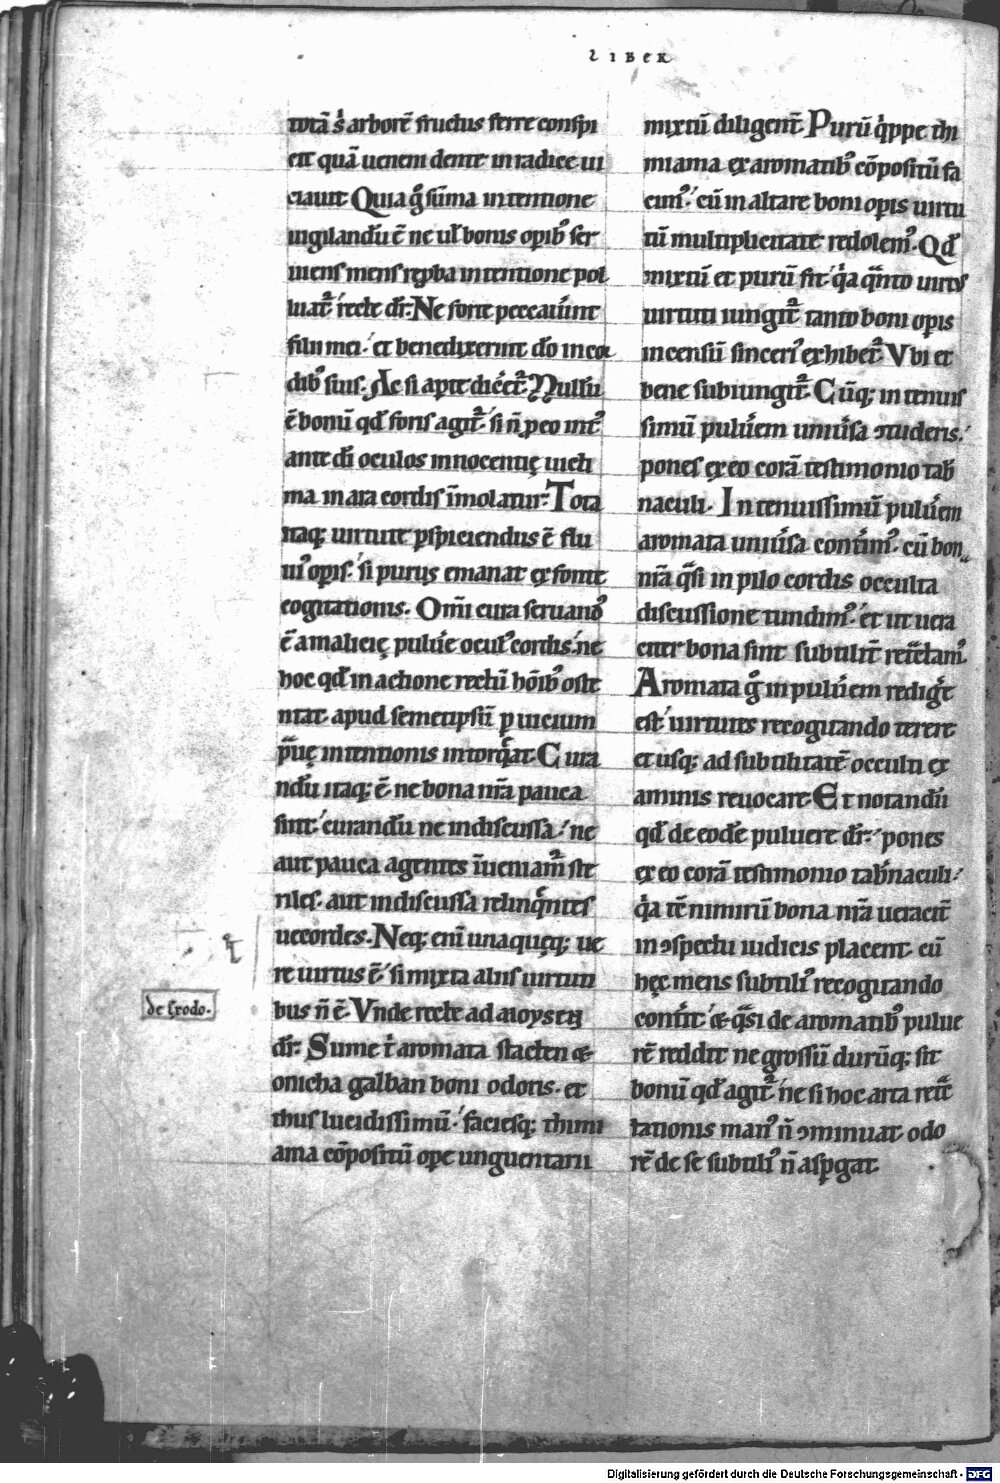 LIBER
totā s' arborē fructus ferre conspi
cit quā ueneni dente in radice ui
ciauit. Quia g° sūma intentione
uigilandū ē ne ul' bonis opib; ser
uiens mens reproba intentione pol
luat̄. recte dr̄. Ne forte peccauerint
filii mei. et benedixerint dō in cor
dib; suis. Ac si apte diceret̄. Nullū
ē bonū qd' foris agit̄. si ñ p eo int;
ante dī oculos innocentię uicti
ma in ara cordis īmolatur. Tota
itaq; uirtute pspiciendus ē flu
ui; opis. si purus emanat ex fonte
cogitationis. Omī cura seruand;
ē a malicię puluere ocul; cordis. ne
hoc qd' in actione rectū hōib; oste
ntat apud semetipsū p uicium
prauę intentionis intorqueat. Cura
ndū itaq; ē. ne bona nr̄a pauca
sint. curandū ne indiscussa. ne
aut pauca agentes īueniam̄ ste
riles. aut indiscussa relinquentes
uecordes. Neq; enī unaquęq; ue
re uirtus ē. si mixta aliis uirtuti
bus ñ ē. Vnde recte ad moysen
de Exodo.
dr̄. Sume t' aromata stacten &
onicha galban boni odoris. et
thus lucidissimū. faciesq; thimi
ama cōpositū ope unguentarii
mixtū diligent̄. Purū q'ppe thi
miama ex aromatib; cōpositū fa
cim;. cū in altare boni opis uirtu
tū multiplicitate redolem;. Qd'
mixtū et purū fit. q'a quanto uirtus
uirtuti iungit̄. tanto boni opis
incensū sincer; exhibet̄. Vbi et
bene subiungit̄. Cūq; in tenuis
simū puluerem uniuersa ɔtuderis.
pones ex eo corā testimonio tab
naculi. In tenuissimū puluerem
aromata uniuersa conterim;. cū bon
nr̄a quasi in pilo cordis occulta
discussione tundim;. et ut uera
citer bona sint subtilit̄ retractam;.
Aromata g° in puluerem redigere
est. uirtutes recogitando terere
et usq; ad subtilitatē occulti ex
aminis reuocare. Et notandū
qd' de eodē puluere dr̄. pones
ex eo corā testimonio tab̄naculi.
q'a tē nimirū bona nr̄a ueracit̄
in ɔspectu iudicis placent. cū
hęc mens subtili; recogitando
conterit. & quasi de aromatib; pulue
rē reddit. ne grossū durūq; sit
bonū qd' agit̄. ne si hoc arta retrac
tationis man; ñ ɔminuat odo
rē de se subtili; ñ aspgat.
Digitalisierung gefördert durch die Deutsche Forschungsgemeinschaft - DFG